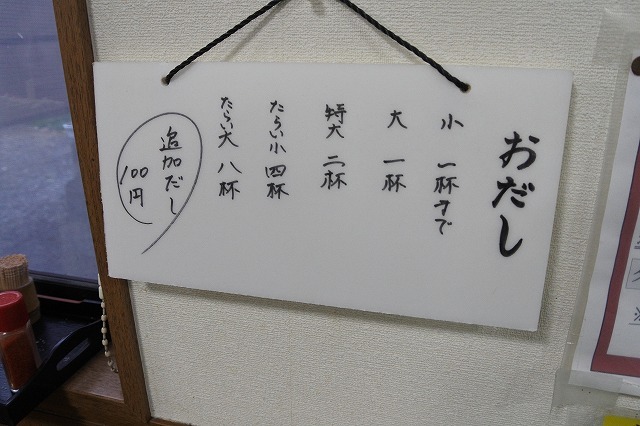 おだし
小 一杯まで
大 一杯
特大 二杯
たらい小 四杯
たらい大 八杯
追加だし
100円